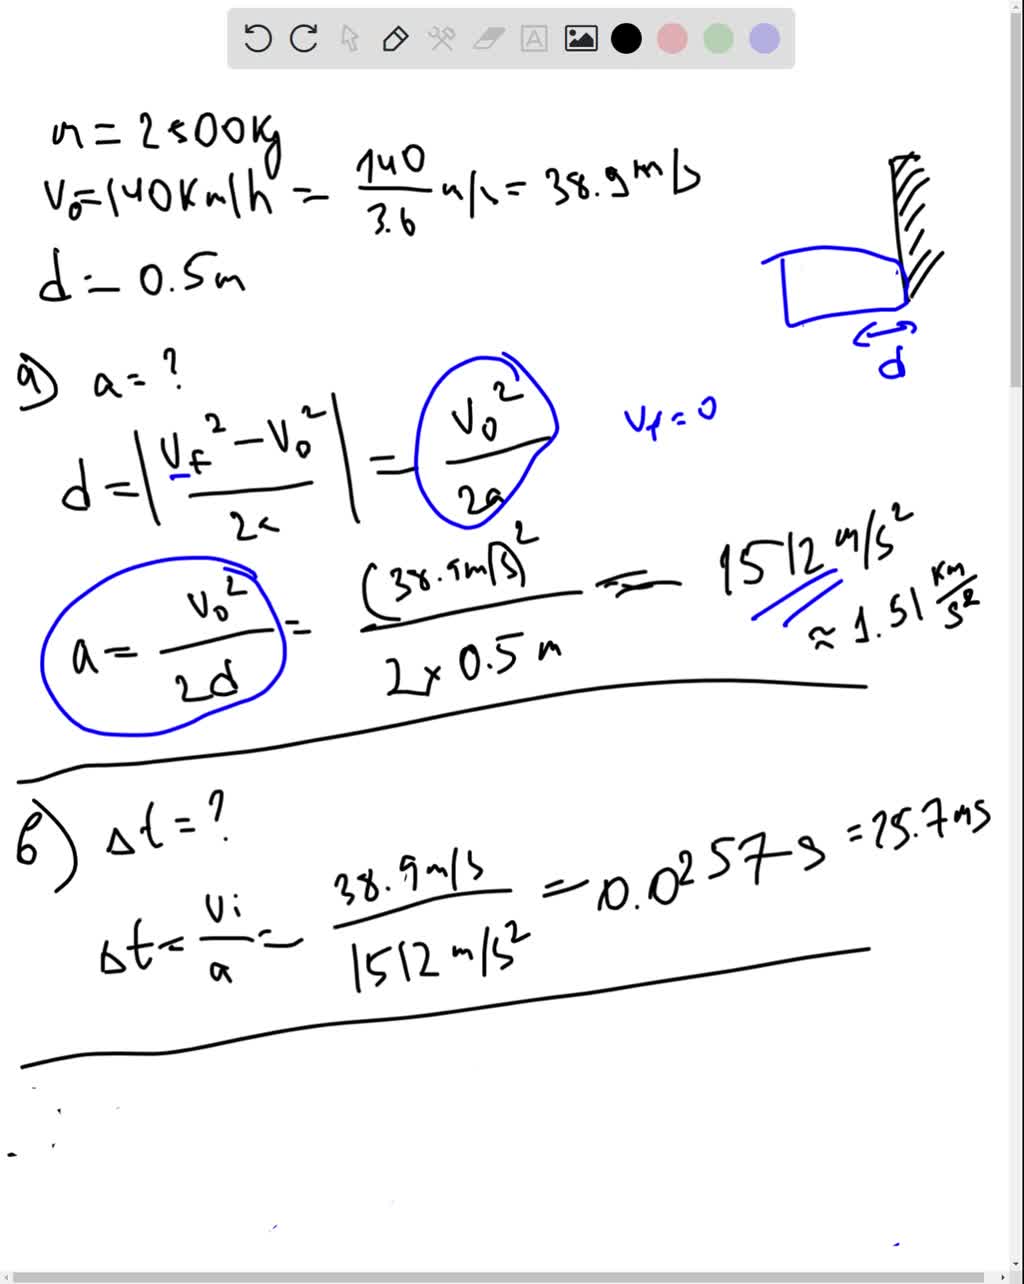 m = 2500Kg
V₀ = 140Km/h = 140/3.6 m/s = 38.9 m/s
d = 0.5m
d
a) a = ?
d = |(V_f² - V₀²)/2a| = V₀²/2a
V_f = 0
a = V₀²/2d = (38.9m/s)²/(2 × 0.5 m) = 1512 m/s²
≈ 1.51 Km/s²
b) Δt = ?
Δt = Vi/a = 38.9m/s / 1512 m/s² = 0.0257 s = 25.7 ms